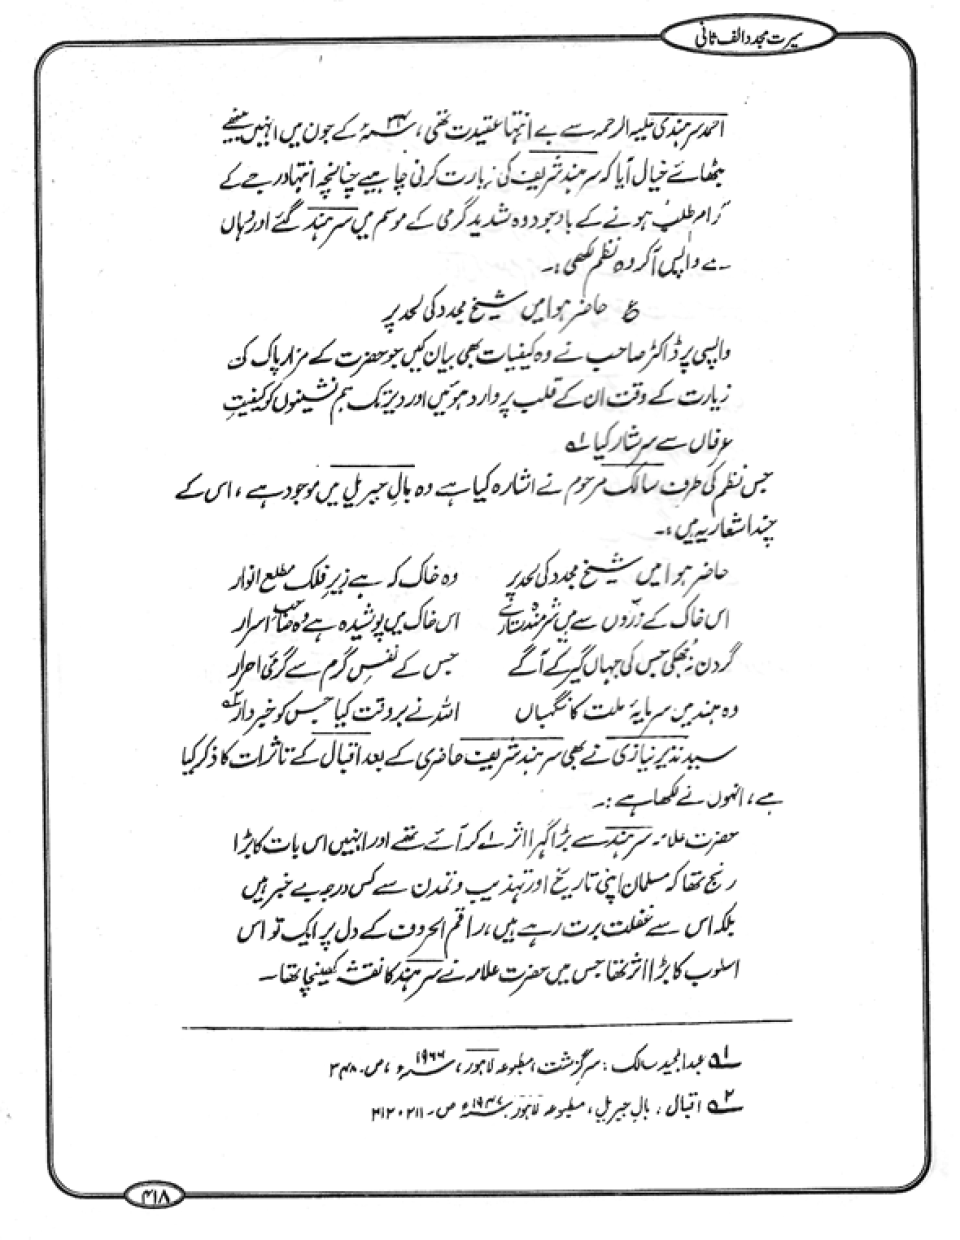 سیرت مجدد الف ثانی
احمد سرہندی علیہ الرحمہ سے بے انتہا عقیدت تھی، ۳۴ء کے جون میں انہیں بیٹھے
بٹھائے خیال آیا کہ سرہند شریف کی زیارت کرنی چاہیے چنانچہ انتہا درجے کے
آرام طلب ہونے کے باوجود وہ شدید گرمی کے موسم میں سرہند گئے اور وہاں
سے واپس آ کر وہ نظم لکھی :۔
ع حاضر ہوا میں شیخ مجدد کی لحد پر
واپسی پر ڈاکٹر صاحب نے وہ کیفیات بھی بیان کیں جو حضرت کے مزار پاک کی
زیارت کے وقت ان کے قلب پر وارد ہوئیں اور دیر تک ہم نشینوں کو کیفیتِ
عرفاں سے سرشار کیا ۱؎
جس نظم کی طرف سالک مرحوم نے اشارہ کیا ہے وہ بالِ جبریل میں موجود ہے، اس کے
چند اشعار یہ ہیں :۔
حاضر ہوا میں شیخ مجدد کی لحد پر وہ خاک کہ ہے زیرِ فلک مطلعِ انوار
اس خاک کے ذرّوں سے ہیں شرمندہ ستارے اس خاک میں پوشیدہ ہے وہ صاحبِ اسرار
گردن نہ جھکی جس کی جہاں گیر کے آگے جس کے نفسِ گرم سے گرمیٔ احرار
وہ ہند میں سرمایۂ ملت کا نگہباں اللہ نے بروقت کیا جس کو خبردار ۲؎
سید نذیر نیازی نے بھی سرہند شریف حاضری کے بعد اقبال کے تاثرات کا ذکر کیا
ہے، انہوں نے لکھا ہے :۔
حضرت علامہ سرہند سے بڑا گہرا اثر لے کر آئے تھے اور انہیں اس بات کا بڑا
رنج تھا کہ مسلمان اپنی تاریخ اور تہذیب و تمدن سے کس درجہ بے خبر ہیں
بلکہ اس سے غفلت برت رہے ہیں، راقم الحروف کے دل پر ایک تو اس
اسلوب کا بڑا اثر تھا جس میں حضرت علامہ نے سرہند کا نقشہ کھینچا تھا۔
۱؎ عبدالمجید سالک : سرگزشت، مطبوعہ لاہور، ۱۹۶۶ء، ص۔ ۳۴۸
۲؎ اقبال، بالِ جبریل، مطبوعہ لاہور ۱۹۴۷ء ص۔ ۲۱۱، ۲۱۲
۴۱۸